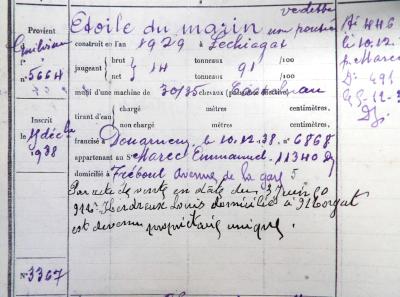 Provient
Etoile du matin un ponté
vedette
construit en l'an 1929 à Lechiagat
f°
jaugeant brut tonneaux /100
net 14 tonneaux 91 /100
N° 5664
muni d'une machine de 30/35 chevaux
tirant d'eau chargé mètres centimètres,
non chargé mètres centimètres,
Inscrit
le
1938
francisé à Douarnenez le 10.12.38. n° 6868
appartenant au Sr Marec Emmanuel 11340
domicilié à Tréboul avenue de la gare 5
Par acte de vente en date du 3 Juin
Louis domicilié à Morgat
est devenu propriétaire unique.
N° 3367
N° 446
le 10.12
p. Marec
D° 491